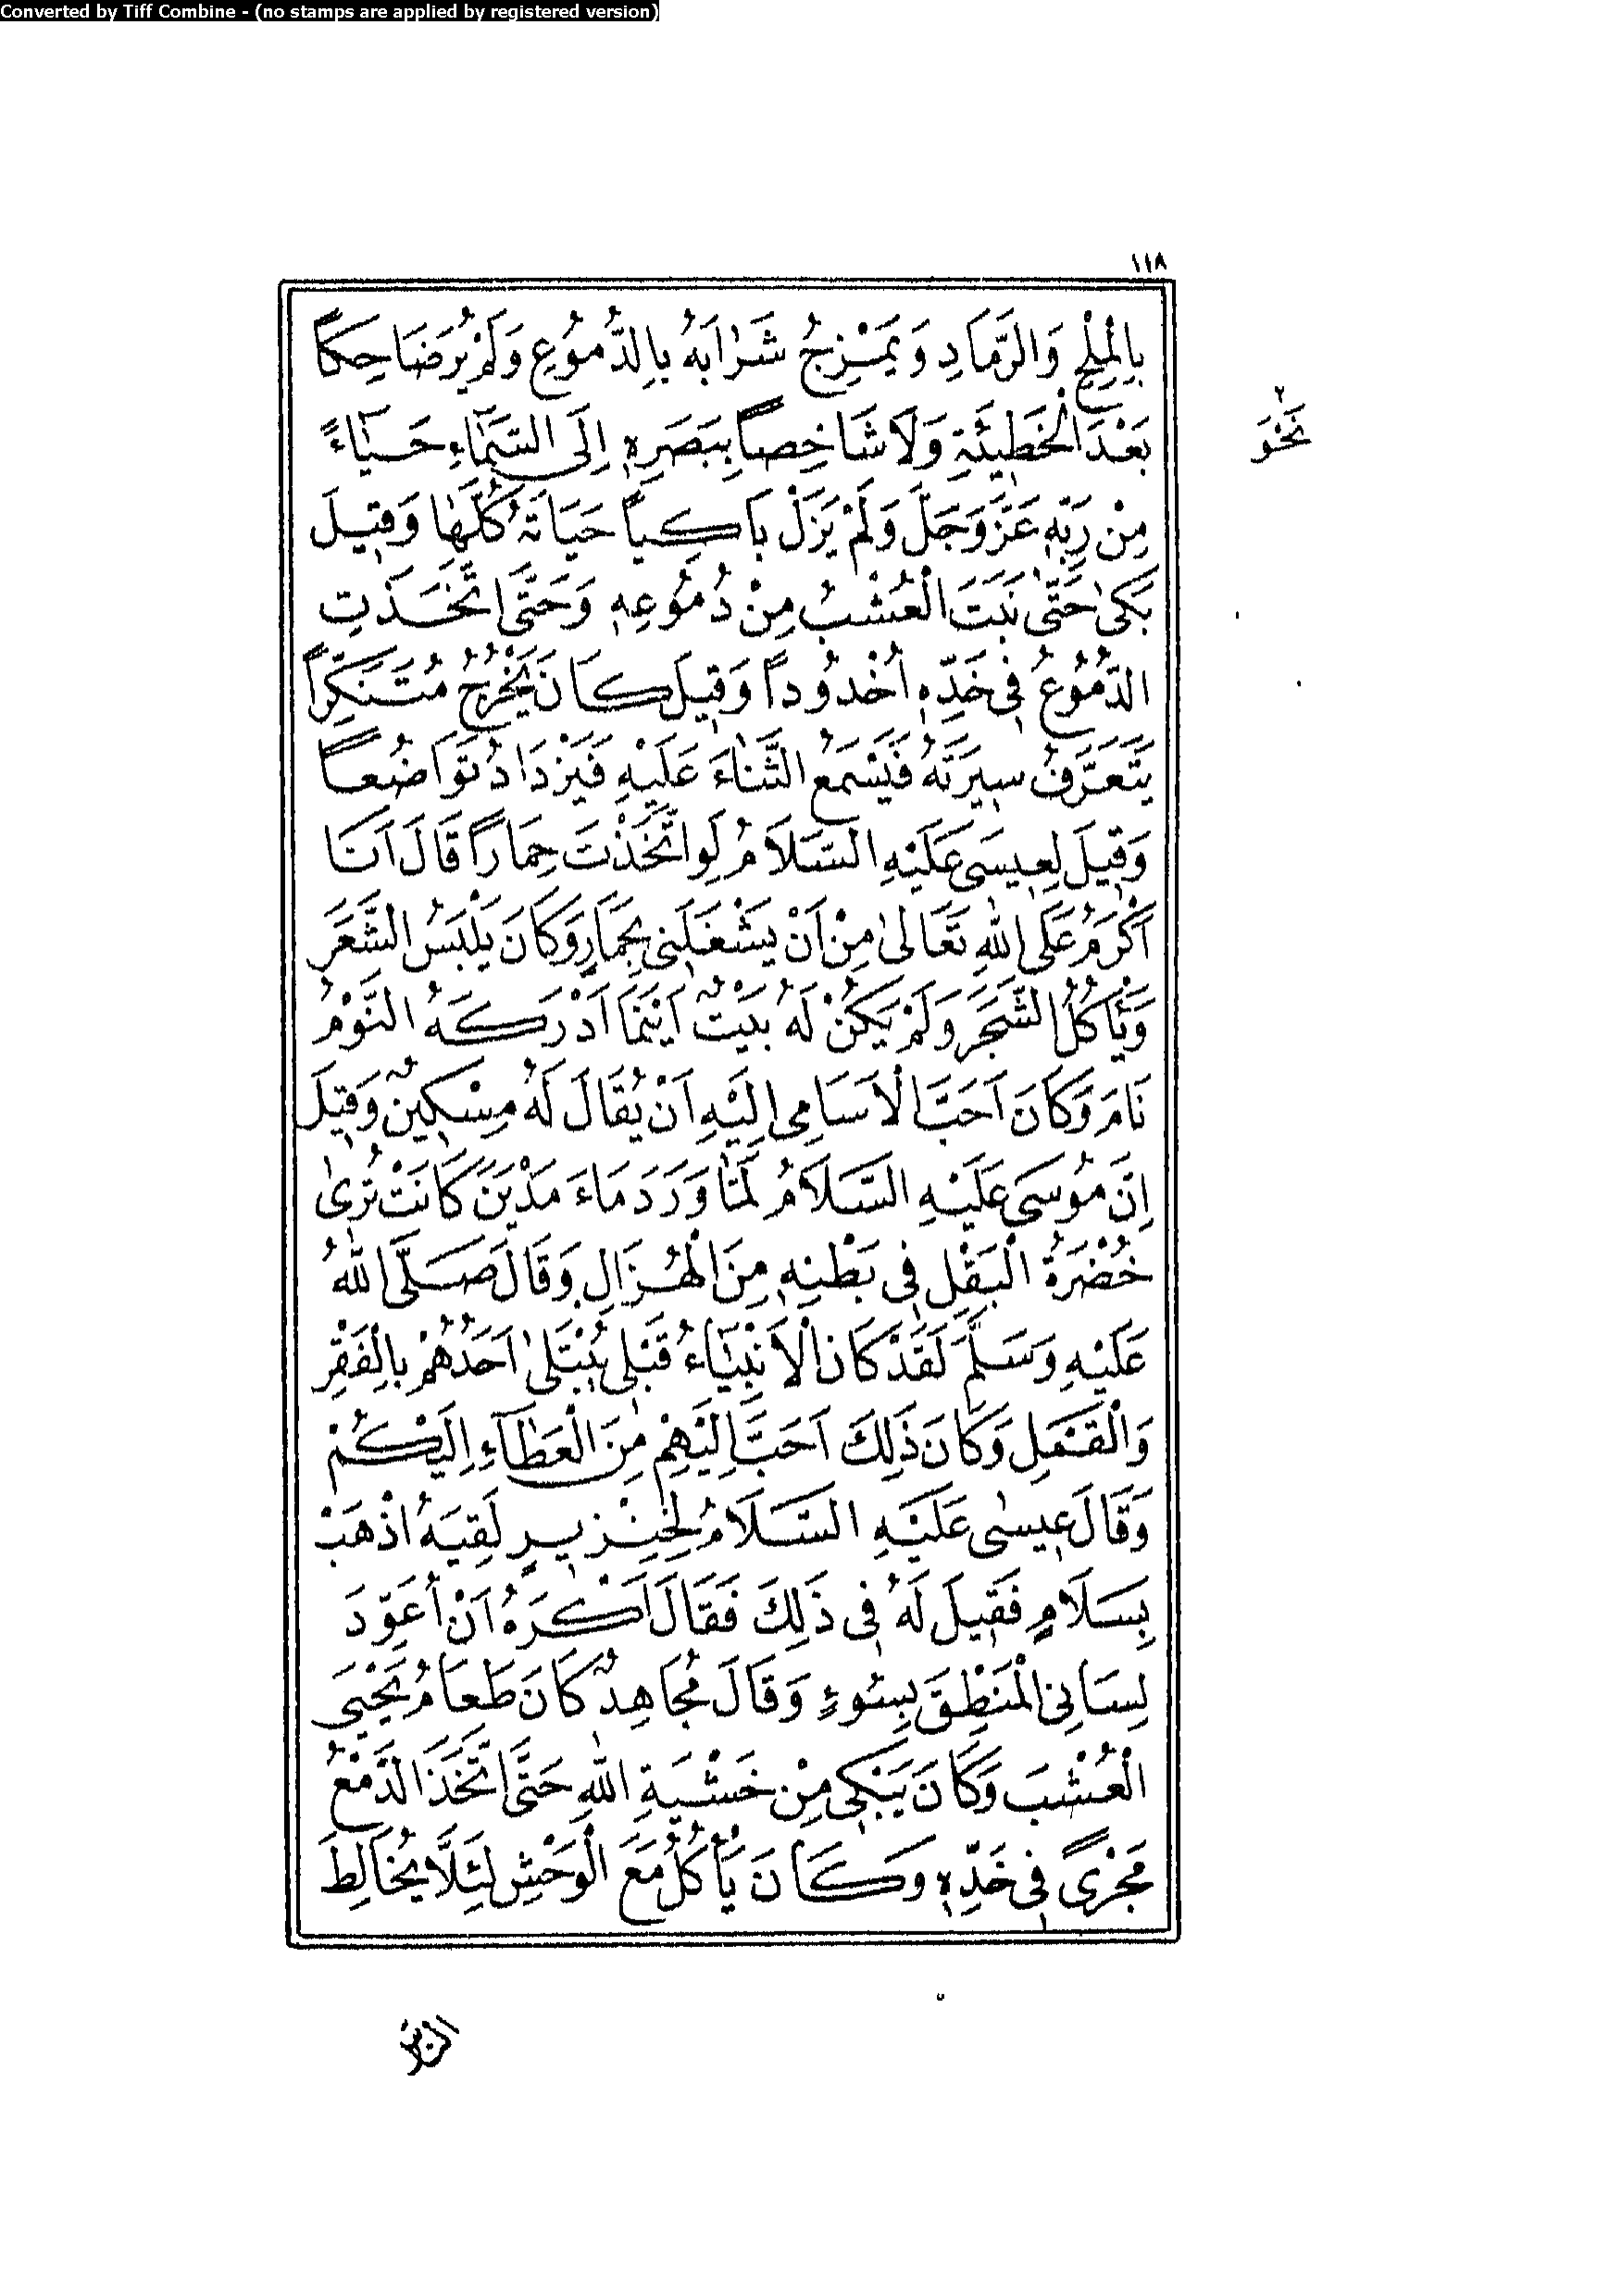 Converted by Tiff Combine - (no stamps are applied by registered version)
١١٨
بِالْمِلْحِ وَالرَّمَادِ وَيَمْزِجُ شَرَابَهُ بِالدُّمُوعِ وَلَمْ يُرَ ضَاحِكاً
بَعْدَ الْخَطِيئَةِ وَلَا شَاخِصاً بِبَصَرِهِ اِلَى السَّمَاءِ حَيَاءً
نَحْوَ
٢
مِنْ رَبِّهِ عَزَّ وَجَلَّ وَلَمْ يَزَلْ بَاكِياً حَيَاتَهُ كُلَّهَا وَقِيلَ
بَكَى حَتَّى نَبَتَ الْعُشْبُ مِنْ دُمُوعِهِ وَحَتَّى اتَّخَذَتِ
الدُّمُوعُ فِى خَدِّهِ اُخْدُوداً وَقِيلَ كَانَ يَخْرُجُ مُتَنَكِّراً
يَتَعَرَّفُ سِيرَتَهُ فَيَسْمَعُ الثَّنَاءَ عَلَيْهِ فَيَزْدَادُ تَوَاضُعاً
وَقِيلَ لِعِيسَى عَلَيْهِ السَّلَامُ لَوِ اتَّخَذْتَ حِمَاراً قَالَ اَنَا
اَكْرَمُ عَلَى اللهِ تَعَالَى مِنْ اَنْ يَشْغَلَنِى بِحِمَارٍ وَكَانَ يَلْبَسُ الشَّعَرَ
وَيَأْكُلُ الشَّجَرَ وَلَمْ يَكُنْ لَهُ بَيْتٌ اَيْنَمَا اَدْرَكَهُ النَّوْمُ
نَامَ وَكَانَ اَحَبَّ الْاَسَامِى اِلَيْهِ اَنْ يُقَالَ لَهُ مِسْكِينٌ وَقِيلَ
اِنَّ مُوسَى عَلَيْهِ السَّلَامُ لَمَّا وَرَدَ مَاءَ مَدْيَنَ كَانَتْ تُرَى
خُضْرَةُ الْبَقْلِ فِى بَطْنِهِ مِنَ الْهُزَالِ وَقَالَ صَلَّى اللهُ
عَلَيْهِ وَسَلَّمَ لَقَدْ كَانَ الْاَنْبِيَاءُ قَبْلِى يُبْتَلَى اَحَدُهُمْ بِالْفَقْرِ
وَالْقَمْلِ وَكَانَ ذَلِكَ اَحَبَّ اِلَيْهِمْ مِنَ الْعَطَاءِ اِلَيْكُمْ
وَقَالَ عِيسَى عَلَيْهِ السَّلَامُ لِخِنْزِيرٍ لَقِيَهُ اذْهَبْ
بِسَلَامٍ فَقِيلَ لَهُ فِى ذَلِكَ فَقَالَ اَكْرَهُ اَنْ اُعَوِّدَ
لِسَانِى الْمَنْطِقَ بِسُوءٍ وَقَالَ مُجَاهِدٌ كَانَ طَعَامُ يَحْيَى
الْعُشْبَ وَكَانَ يَبْكِى مِنْ خَشْيَةِ اللهِ حَتَّى اتَّخَذَ الدَّمْعُ
مَجْرًى فِى خَدِّهِ وَكَانَ يَأْكُلُ مَعَ الْوَحْشِ لِئَلَّا يُخَالِطَ